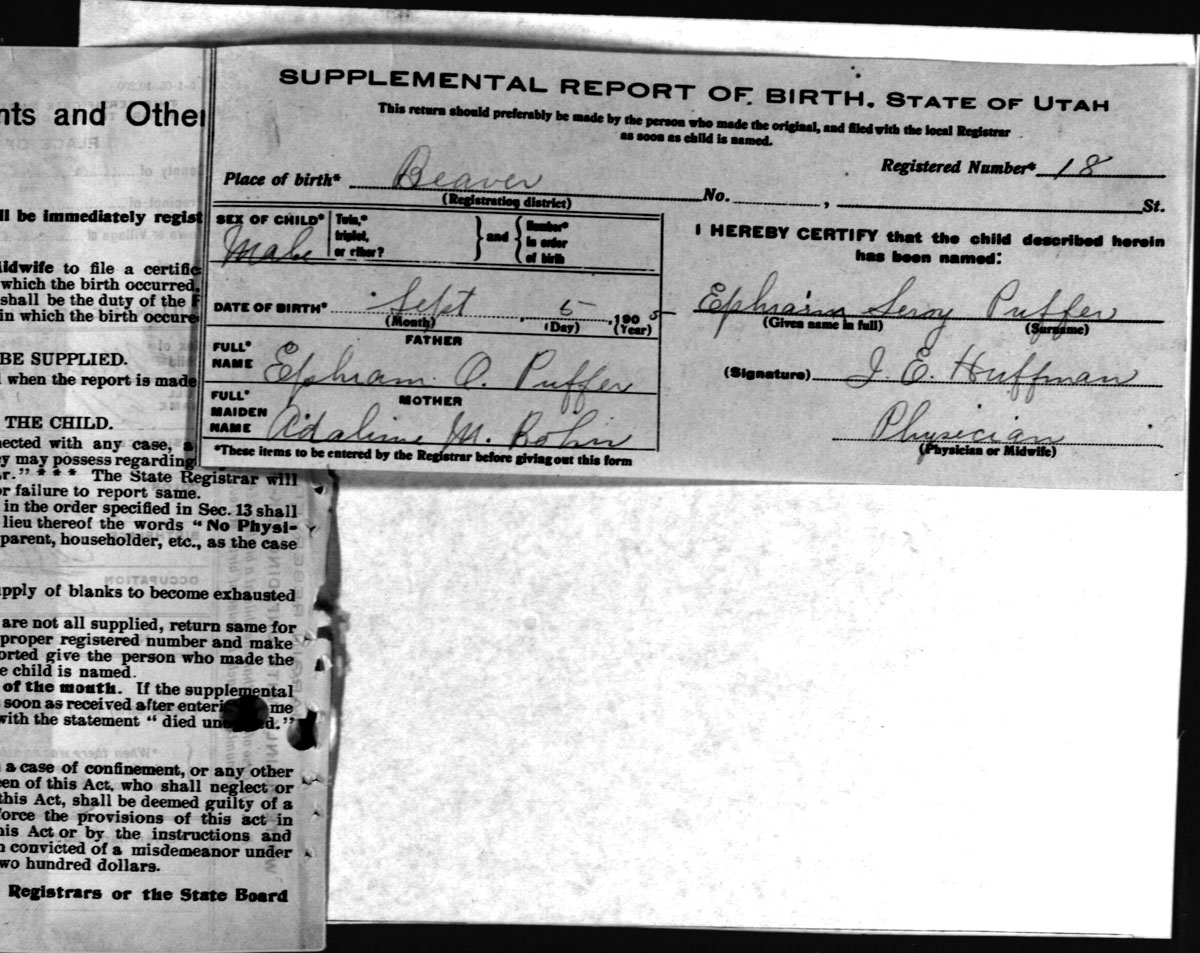 SUPPLEMENTAL REPORT OF BIRTH. STATE OF UTAH
This return should preferably be made by the person who made the original, and filed with the local Registrar
as soon as child is named.
Registered Number* 18
Place of birth* Beaver No. , St.
(Registration district)
SEX OF CHILD* Male
Twin,*
triplet,
or other?
and
Number*
in order
of birth
DATE OF BIRTH* Sept 5 1905
(Month) (Day) (Year)
FATHER
FULL*
NAME
Ephram O. Puffer
MOTHER
FULL*
MAIDEN
NAME
Adaline M.
*These items to be entered by the Registrar before giving out this form
I HEREBY CERTIFY that the child described herein
has been named:
Ephraim Leroy Puffer
(Given name in full) (Surname)
(Signature) J. E. Huffman
Physician
(Physician or Midwife)
nts and Other
ll be immediately regist
idwife to file a certific
which the birth occurred,
shall be the duty of the
in which the birth occure
BE SUPPLIED.
when the report is made
THE CHILD.
nected with any case,
y may possess regarding
r." * * * The State Registrar will
or failure to report same.
in the order specified in Sec. 13 shall
lieu thereof the words "No Physi-
parent, householder, etc., as the case
OCCUPATION
pply of blanks to become exhausted
are not all supplied, return same for
proper registered number and make
orted give the person who made the
e child is named.
of the month. If the supplemental
soon as received after enteri me
with the statement "died un d."
a case of confinement, or any other
een of this Act, who shall neglect or
this Act, shall be deemed guilty of a
force the provisions of this act in
his Act or by the instructions and
n convicted of a misdemeanor under
wo hundred dollars.
Registrars or the State Board